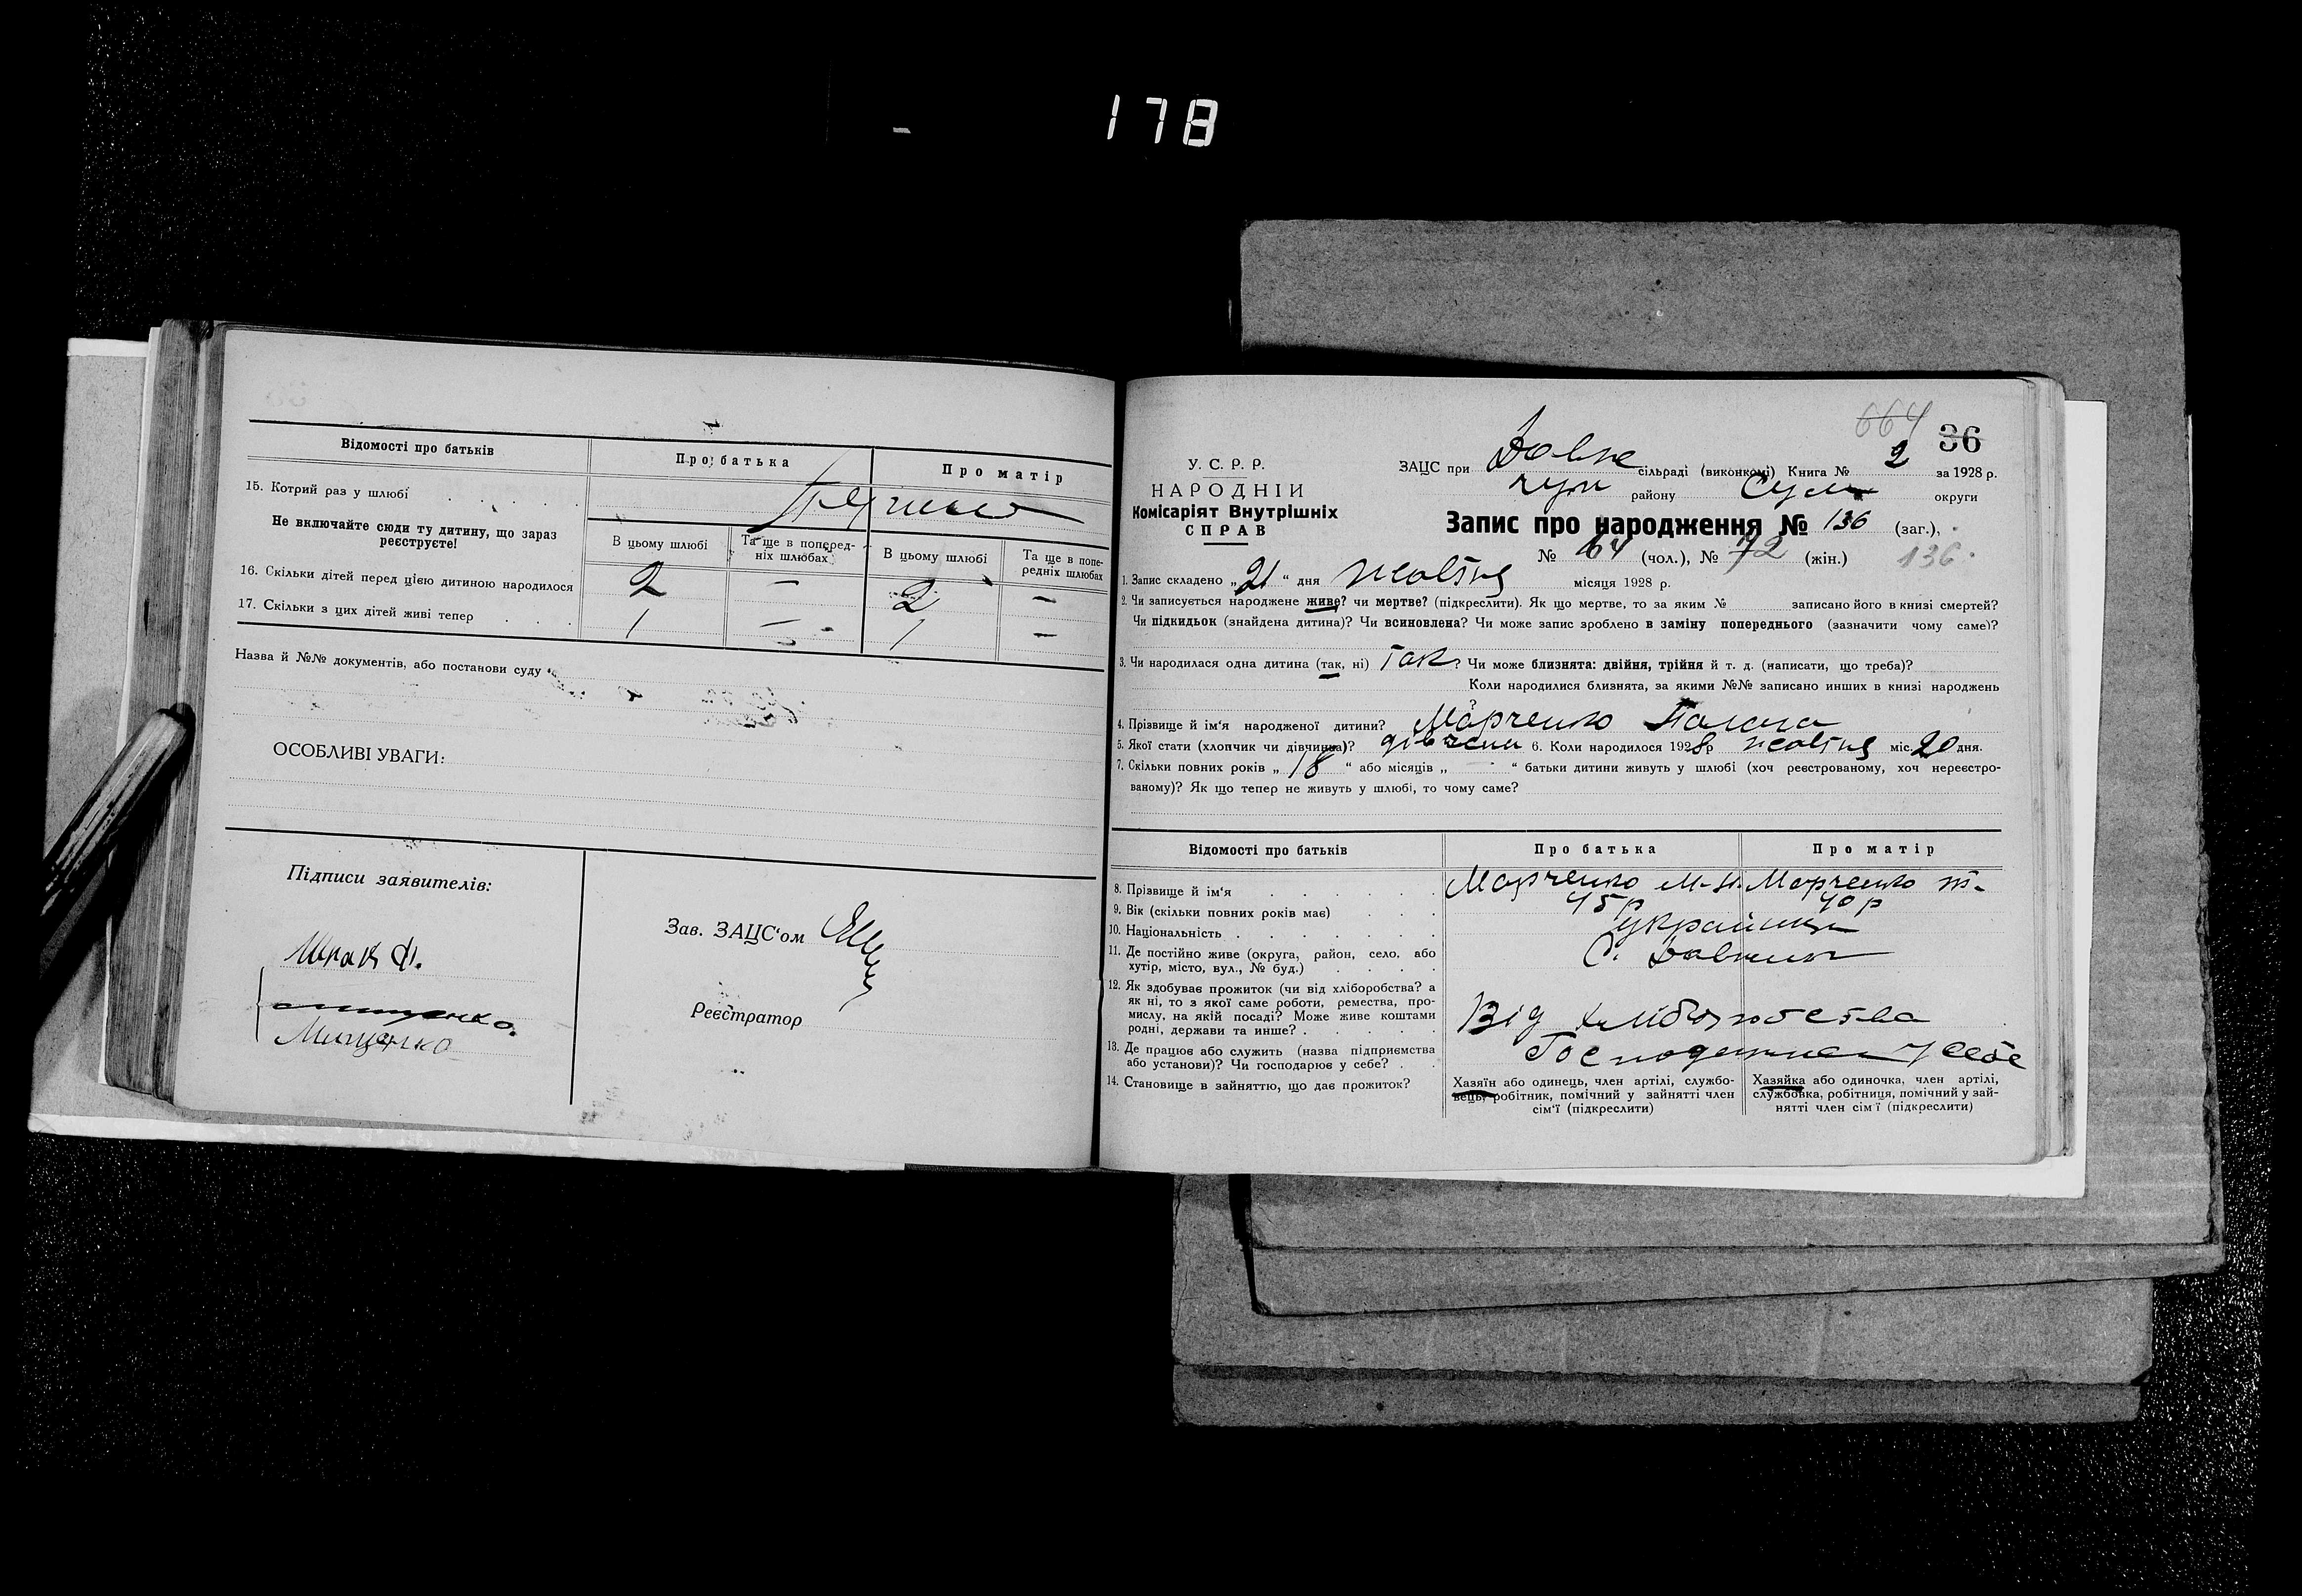 178
Відомості про батьків
Про батька
Про матір
15. Котрий раз у шлюбі
Не включайте сюди ту дитину, що зараз реєструєте!
В цьому шлюбі
Та ще в попередніх шлюбах
В цьому шлюбі
Та ще в попередніх шлюбах
16. Скільки дітей перед цією дитиною народилося 2 — 2 —
17. Скільки з цих дітей живі тепер 1 — 1 —
Назва й №№ документів, або постанови суду
ОСОБЛИВІ УВАГИ:
Підписи заявителів:
Зав. ЗАЦС'ом
Реєстратор
Мищенко
664
36
У. С. Р. Р.
НАРОДНІЙ
Комісаріят Внутрішніх
СПРАВ
ЗАЦС при сільраді (виконкомі) Книга № 2 за 1928 р.
району Сум округи
Запис про народження № 136 (заг.),
№ 64 (чол.), № 72 (жін.) 136
1. Запис складено „21“ дня жовтня місяця 1928 р.
2. Чи записується народжене живе? чи мертве? (підкреслити). Як що мертве, то за яким № записано його в книзі смертей?
Чи підкидьок (знайдена дитина)? Чи всиновлена? Чи може запис зроблено в заміну попереднього (зазначити чому саме)?
3. Чи народилася одна дитина (так, ні) Так? Чи може близнята: двійня, трійня й т. д. (написати, що треба)?
Коли народилися близнята, за якими №№ записано инших в книзі народжень ?
4. Прізвище й ім'я народженої дитини? Марченко
5. Якої стати (хлопчик чи дівчинка)? дівчина 6. Коли народилося 1928р жовтня міс. 20 дня.
7. Скільки повних років „18“ або місяців „ — “ батьки дитини живуть у шлюбі (хоч реєстрованому, хоч нереєстро-
ваному)? Як що тепер не живуть у шлюбі, то чому саме?
Відомості про батьків
Про батька
Про матір
8. Прізвище й ім'я Марченко Марченко
9. Вік (скільки повних років має) 45 р 40 р
10. Національність українці
11. Де постійно живе (округа, район, село, або
хутір, місто, вул., № буд.) С.
12. Як здобуває прожиток (чи від хліборобства? а
як ні, то з якої саме роботи, ремества, про-
мислу, на якій посаді? Може живе коштами
родні, держави та инше? Від хліборобства
13. Де працює або служить (назва підприємства
або установи)? Чи господарює у себе? у себе
14. Становище в зайняттю, що дає прожиток?
Хазяїн або одинець, член артілі, службо-
вець, робітник, помічний у зайнятті член
сім'ї (підкреслити)
Хазяйка або одиночка, член артілі,
службовка, робітниця, помічний у зай-
нятті член сім'ї (підкреслити)